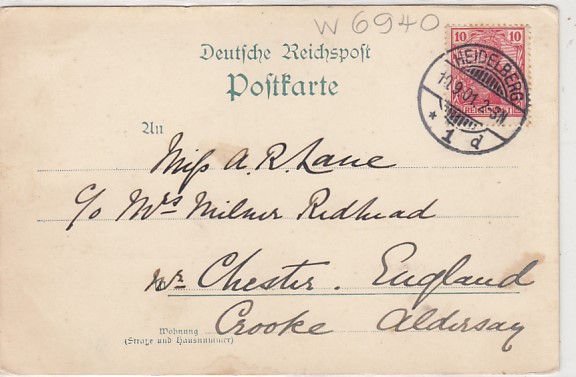 W 6940
Deutsche Reichspost
Postkarte
10 10
HEIDELBERG
10.9.01. 2-3N.
* 1 d
An
Miss A. R. Lane
c/o Mrs Milner Redhead
nr Chester. England
Crooke Aldersay
Wohnung
(Straße und Hausnummer)